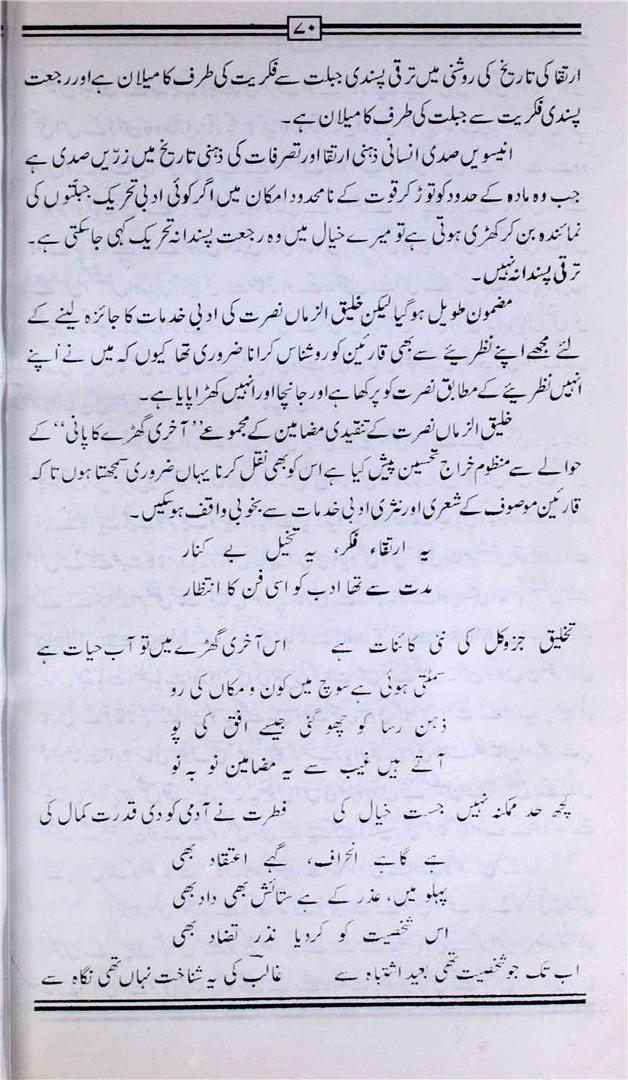 ۷۰
ارتقا کی تاریخ کی روشنی میں ترقی پسندی جبلت سے فکریت کی طرف کا میلان ہے اور رجعت
پسندی فکریت سے جبلت کی طرف کا میلان ہے۔
انیسویں صدی انسانی ذہنی ارتقا اور تصرفات کی ذہنی تاریخ میں زرّیں صدی ہے
جب وہ مادہ کے حدود کو توڑ کر قوت کے نامحدود امکان میں اگر کوئی ادبی تحریک جبلّتوں کی
نمائندہ بن کر کھڑی ہوتی ہے تو میرے خیال میں وہ رجعت پسندانہ تحریک کہی جاسکتی ہے۔
ترقی پسندانہ نہیں۔
مضمون طویل ہوگیا لیکن خلیق الزماں نصرت کی ادبی خدمات کا جائزہ لینے کے
لئے مجھے اپنے نظریئے سے بھی قارئین کو روشناس کرانا ضروری تھا کیوں کہ میں نے اپنے
انہیں نظریئے کے مطابق نصرت کو پرکھا ہے اور جانچا اور انہیں کھرا پایا ہے۔
خلیق الزماں نصرت کے تنقیدی مضامین کے مجموعے ’’آخری گھڑے کا پانی‘‘ کے
حوالے سے منظوم خراج تحسین پیش کیا ہے اس کو بھی نقل کرنا یہاں ضروری سمجھتا ہوں تا کہ
قارئین موصوف کے شعری اور نثری ادبی خدمات سے بخوبی واقف ہوسکیں۔
یہ ارتقاء فکر، یہ تخیل بے کنار
مدت سے تھا ادب کو اسی فن کا انتظار
تخلیق جزو کل کی نئی کائنات ہے اس آخری گھڑے میں تو آب حیات ہے
سمٹتی ہوئی ہے سوچ میں کون و مکاں کی رو
ذہن رسا کو چھو گئی جیسے افق کی پو
آتے ہیں غیب سے یہ مضامین نو بہ نو
کچھ حد ممکنہ نہیں جست خیال کی فطرت نے آدمی کو دی قدرت کمال کی
ہے گاہے انحراف، گہے اعتقاد بھی
پہلو میں، عذر کے ہے ستائش بھی داد بھی
اس شخصیت کو کردیا نذر تضاد بھی
اب تک جو شخصیت تھی بعید اشتباہ سے غالب کی یہ شناخت نہاں تھی نگاہ سے